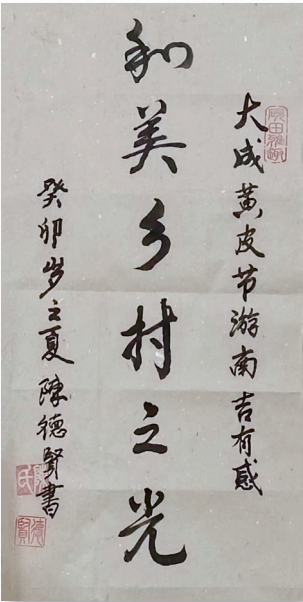 大成黄皮节游南吉有感
和美乡村之光
癸卯岁之夏陳德賢書